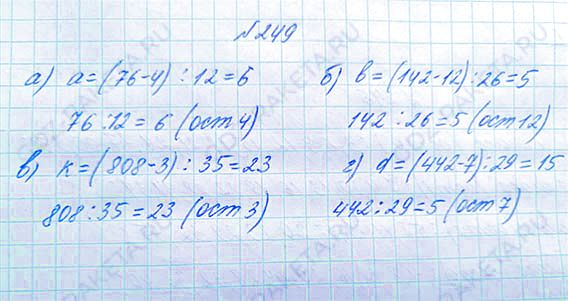 №249
а) a=(76-4):12=6 б) b=(142-12):26=5
76:12=6 (ост 4) 142:26=5 (ост 12)
в) к=(808-3):35=23 г) d=(442-7):29=15
808:35=23 (ост 3) 442:29=5 (ост 7)